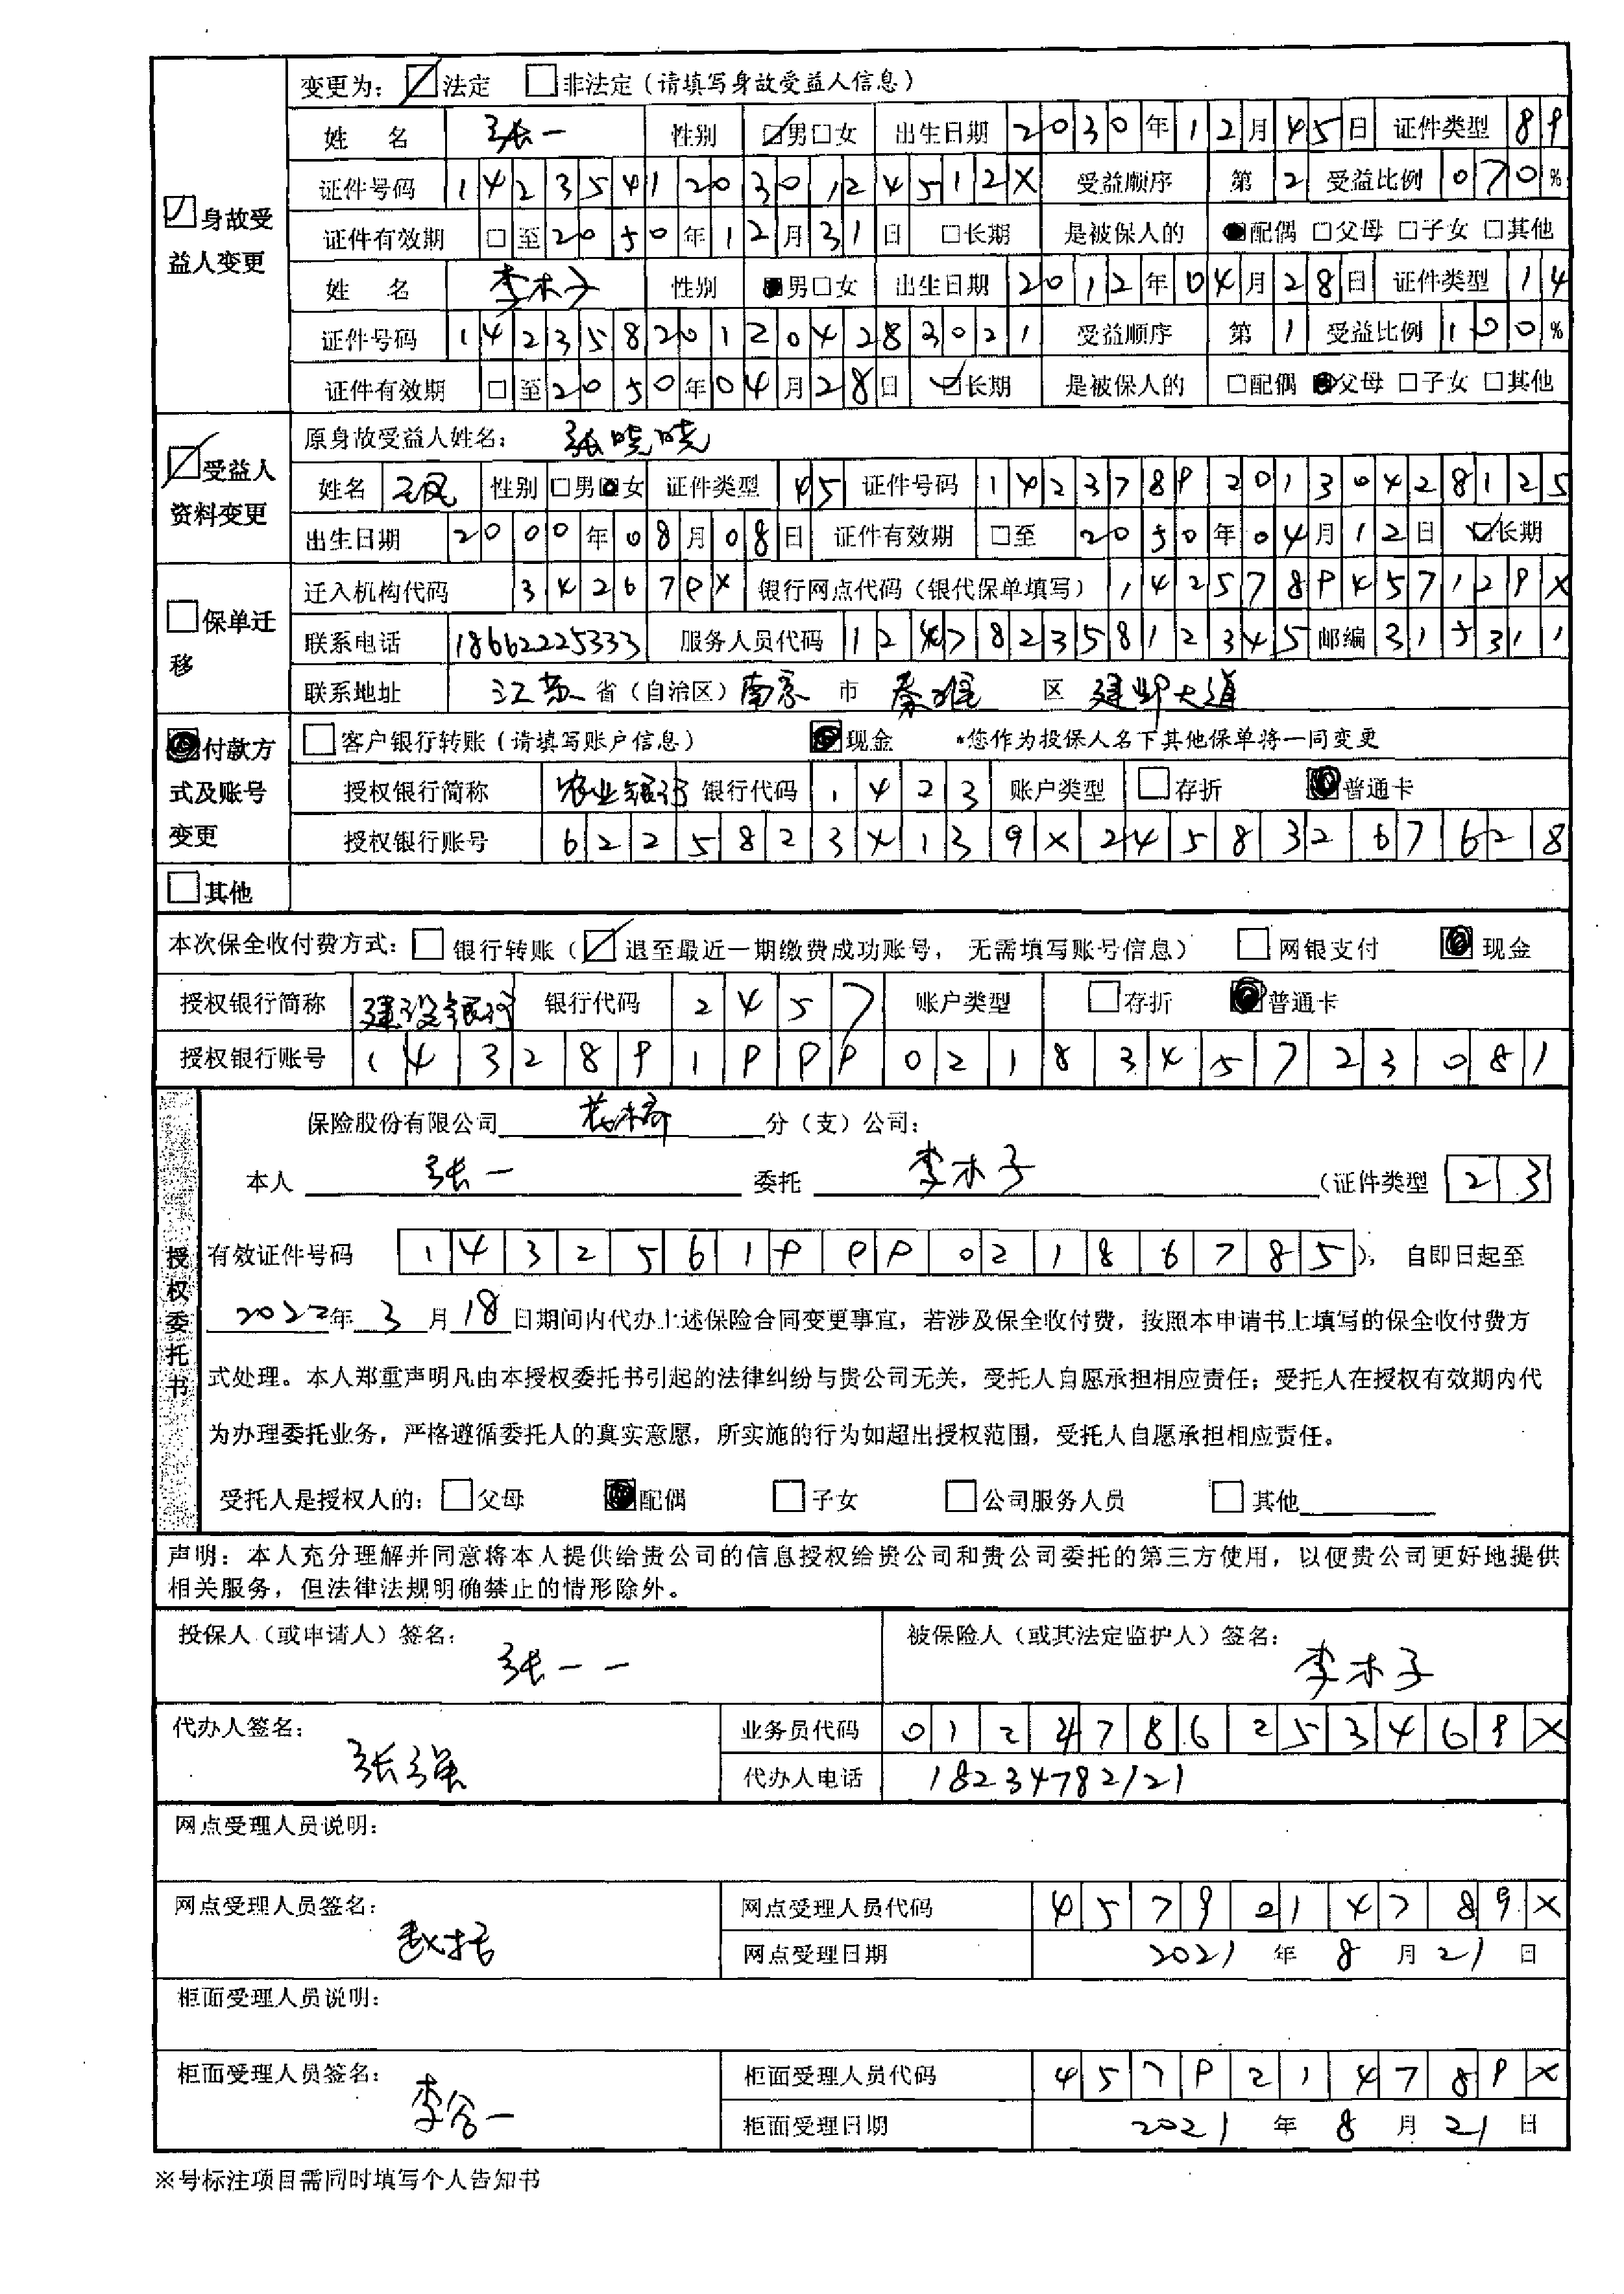 变更为：☑法定 □非法定（请填写身故受益人信息）
姓 名 张一 性别 ☑男□女 出生日期 2030年12月45日 证件类型 89
证件号码 142354412030124512X 受益顺序 第2 受益比例 070%
☑身故受益人变更
证件有效期 □至2050年12月31日 □长期 是被保人的 ■配偶 □父母 □子女 □其他
姓 名 李木子 性别 ■男□女 出生日期 2012年04月28日 证件类型 14
证件号码 142358201204283021 受益顺序 第1 受益比例 100%
证件有效期 □至2050年04月28日 ☑长期 是被保人的 □配偶 ■父母 □子女 □其他
☑受益人资料变更
原身故受益人姓名： 张晓晓
姓名 王凤 性别 □男■女 证件类型 45 证件号码 142378920130428125
出生日期 2000年08月08日 证件有效期 □至 2050年04月12日 ☑长期
□保单迁移
迁入机构代码 342679X 银行网点代码（银代保单填写） 1425789457129X
联系电话 18662225333 服务人员代码 12478235812345 邮编 315311
联系地址 江苏 省（自治区） 南京 市 秦淮 区 建邺大道
■付款方式及账号变更
□客户银行转账（请填写账户信息） ■现金 *您作为投保人名下其他保单将一同变更
授权银行简称 农业银行 银行代码 1423 账户类型 □存折 ■普通卡
授权银行账号 62258234139X24583267628
□其他
本次保全收付费方式：□银行转账（☑退至最近一期缴费成功账号， 无需填写账号信息） □网银支付 ■现金
授权银行简称 建设银行 银行代码 2457 账户类型 □存折 ■普通卡
授权银行账号 14328919990218345723081
授权委托书
保险股份有限公司 花桥 分（支）公司：
本人 张一 委托 李木子 （证件类型 23
有效证件号码 143256199902186785 ），自即日起至
2022年 3 月 18 日期间内代办上述保险合同变更事宜，若涉及保全收付费，按照本申请书上填写的保全收付费方
式处理。本人郑重声明凡由本授权委托书引起的法律纠纷与贵公司无关，受托人自愿承担相应责任；受托人在授权有效期内代
为办理委托业务，严格遵循委托人的真实意愿，所实施的行为如超出授权范围，受托人自愿承担相应责任。
受托人是授权人的：□父母 ■配偶 □子女 □公司服务人员 □其他
声明：本人充分理解并同意将本人提供给贵公司的信息授权给贵公司和贵公司委托的第三方使用，以便贵公司更好地提供
相关服务，但法律法规明确禁止的情形除外。
投保人（或申请人）签名： 张一一 被保险人（或其法定监护人）签名： 李木子
代办人签名： 张强 业务员代码 0124786253469X
代办人电话 18234782121
网点受理人员说明：
网点受理人员签名： 赵托 网点受理人员代码 4579214789X
网点受理日期 2021 年 8 月 21 日
柜面受理人员说明：
柜面受理人员签名： 李谷一 柜面受理人员代码 4579214789X
柜面受理日期 2021 年 8 月 21 日
※号标注项目需同时填写个人告知书